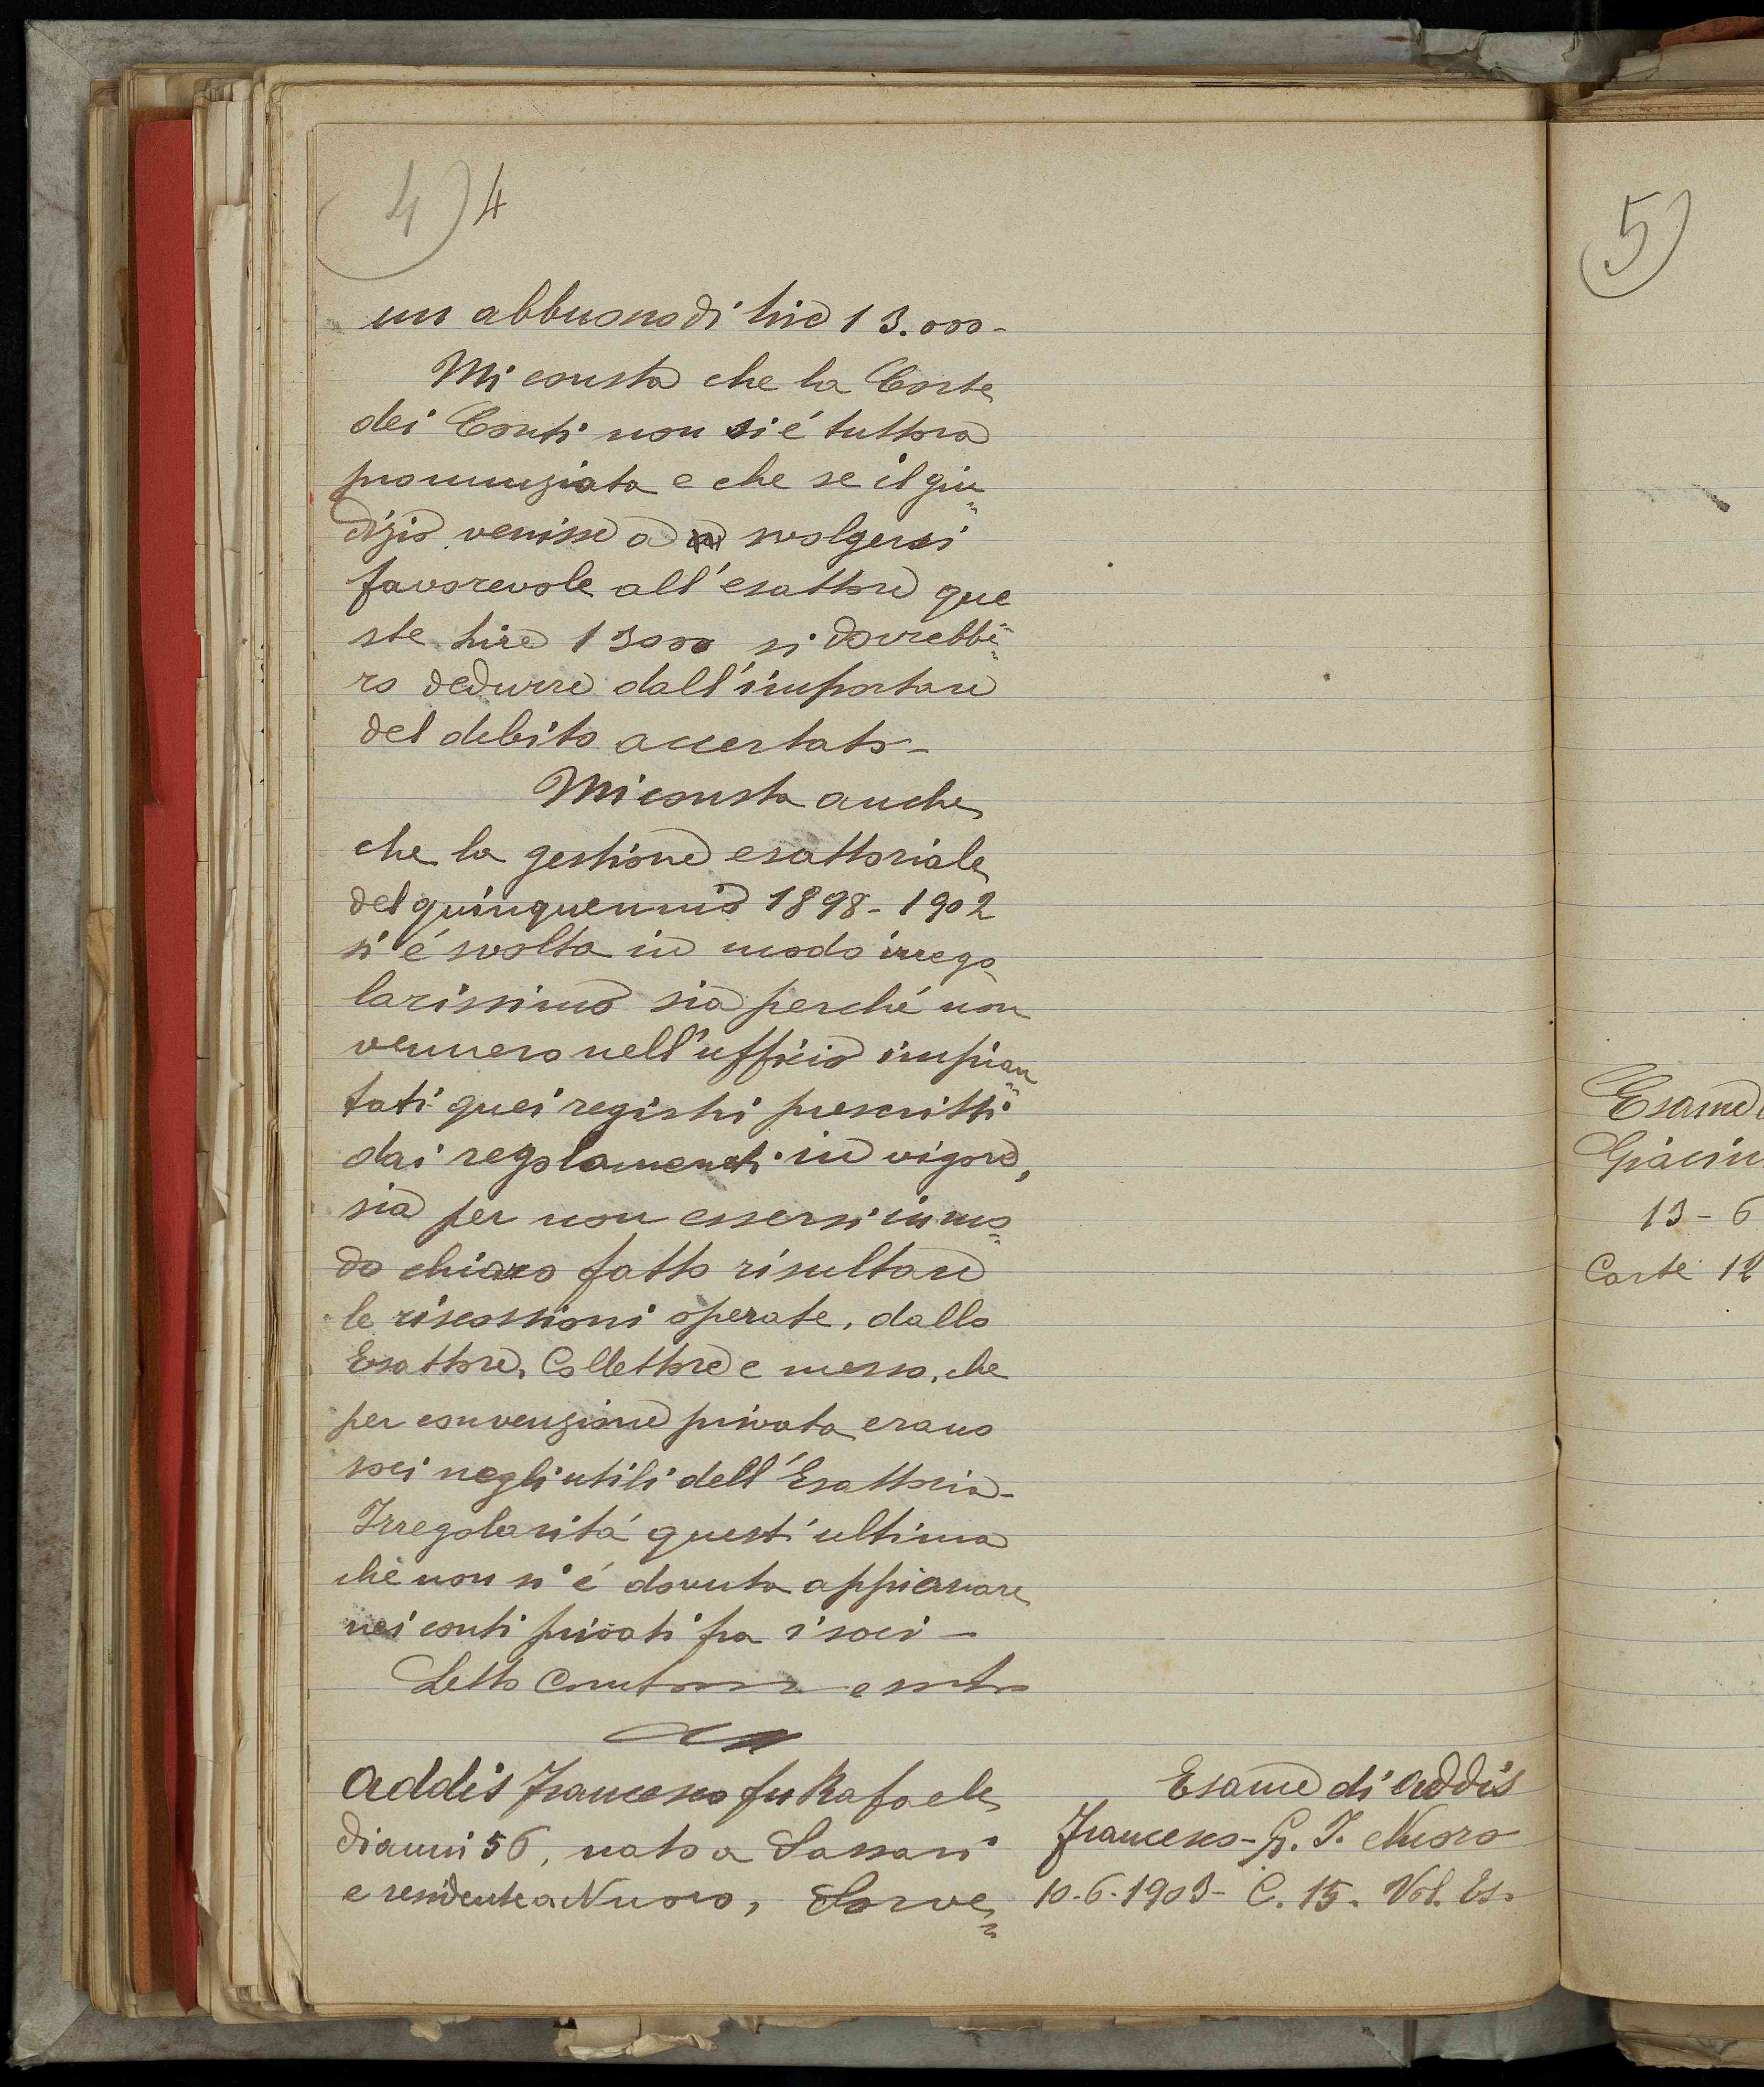 4) 4
un abbuono di lire 13.000-
Mi consta che la Corte
dei Conti non si é tuttora
pronunziata e che se il giu
dizio venisse a svolgersi
favorevole all'esattore que
ste lire 13000 si dovrebbe
ro dedurre dall'importare
del debito accertato-
Mi consta anche
che la gestione esattoriale
del quinquennio 1898-1902
si é svolta in modo irrego
larissimo sia perché non
vennero nell'ufficio impian
tati quei registri prescritti
dai regolamenti in vigore,
sia per non essersi in mo
do chiaro fatto risultare
le riscossioni operate, dallo
Esattore, Collettore e messo, che
per convenzione privata erano
soci negli utili dell'Esattoria-
Irregolaritá quest'ultima
che non si é dovuta appianare
nei conti privati fra i soci-
Letto e
Addis Francesco fu Rafaele
di anni 56, nato a Sassari
e residente a Nuoro, Sorve
Esame di Addis
Francesco-G. I. Nuoro
10.6.1903- C. 15. Vol. Es.
5)
Esame
Giacin
13-6
Carte 12